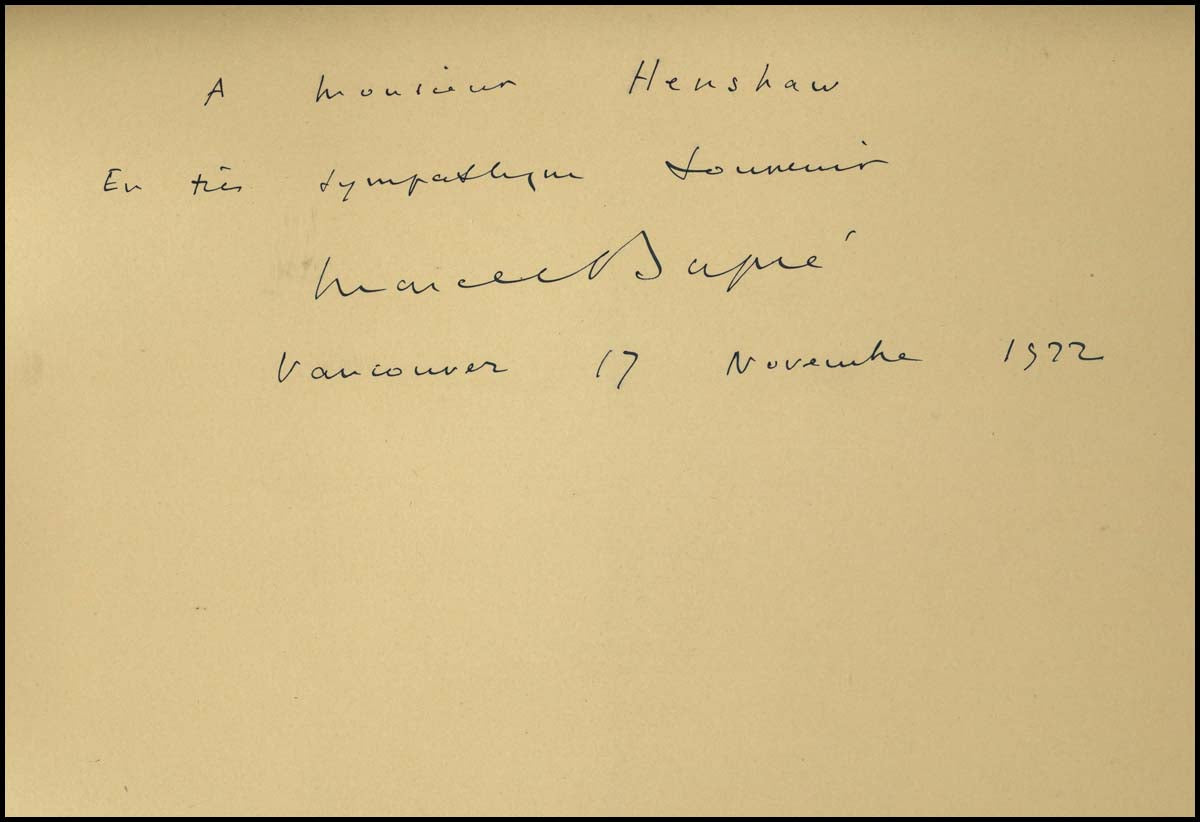 A Monsieur Henshaw
En très sympathique souvenir
Marcel Dupré
Vancouver 17 Novembre 1922